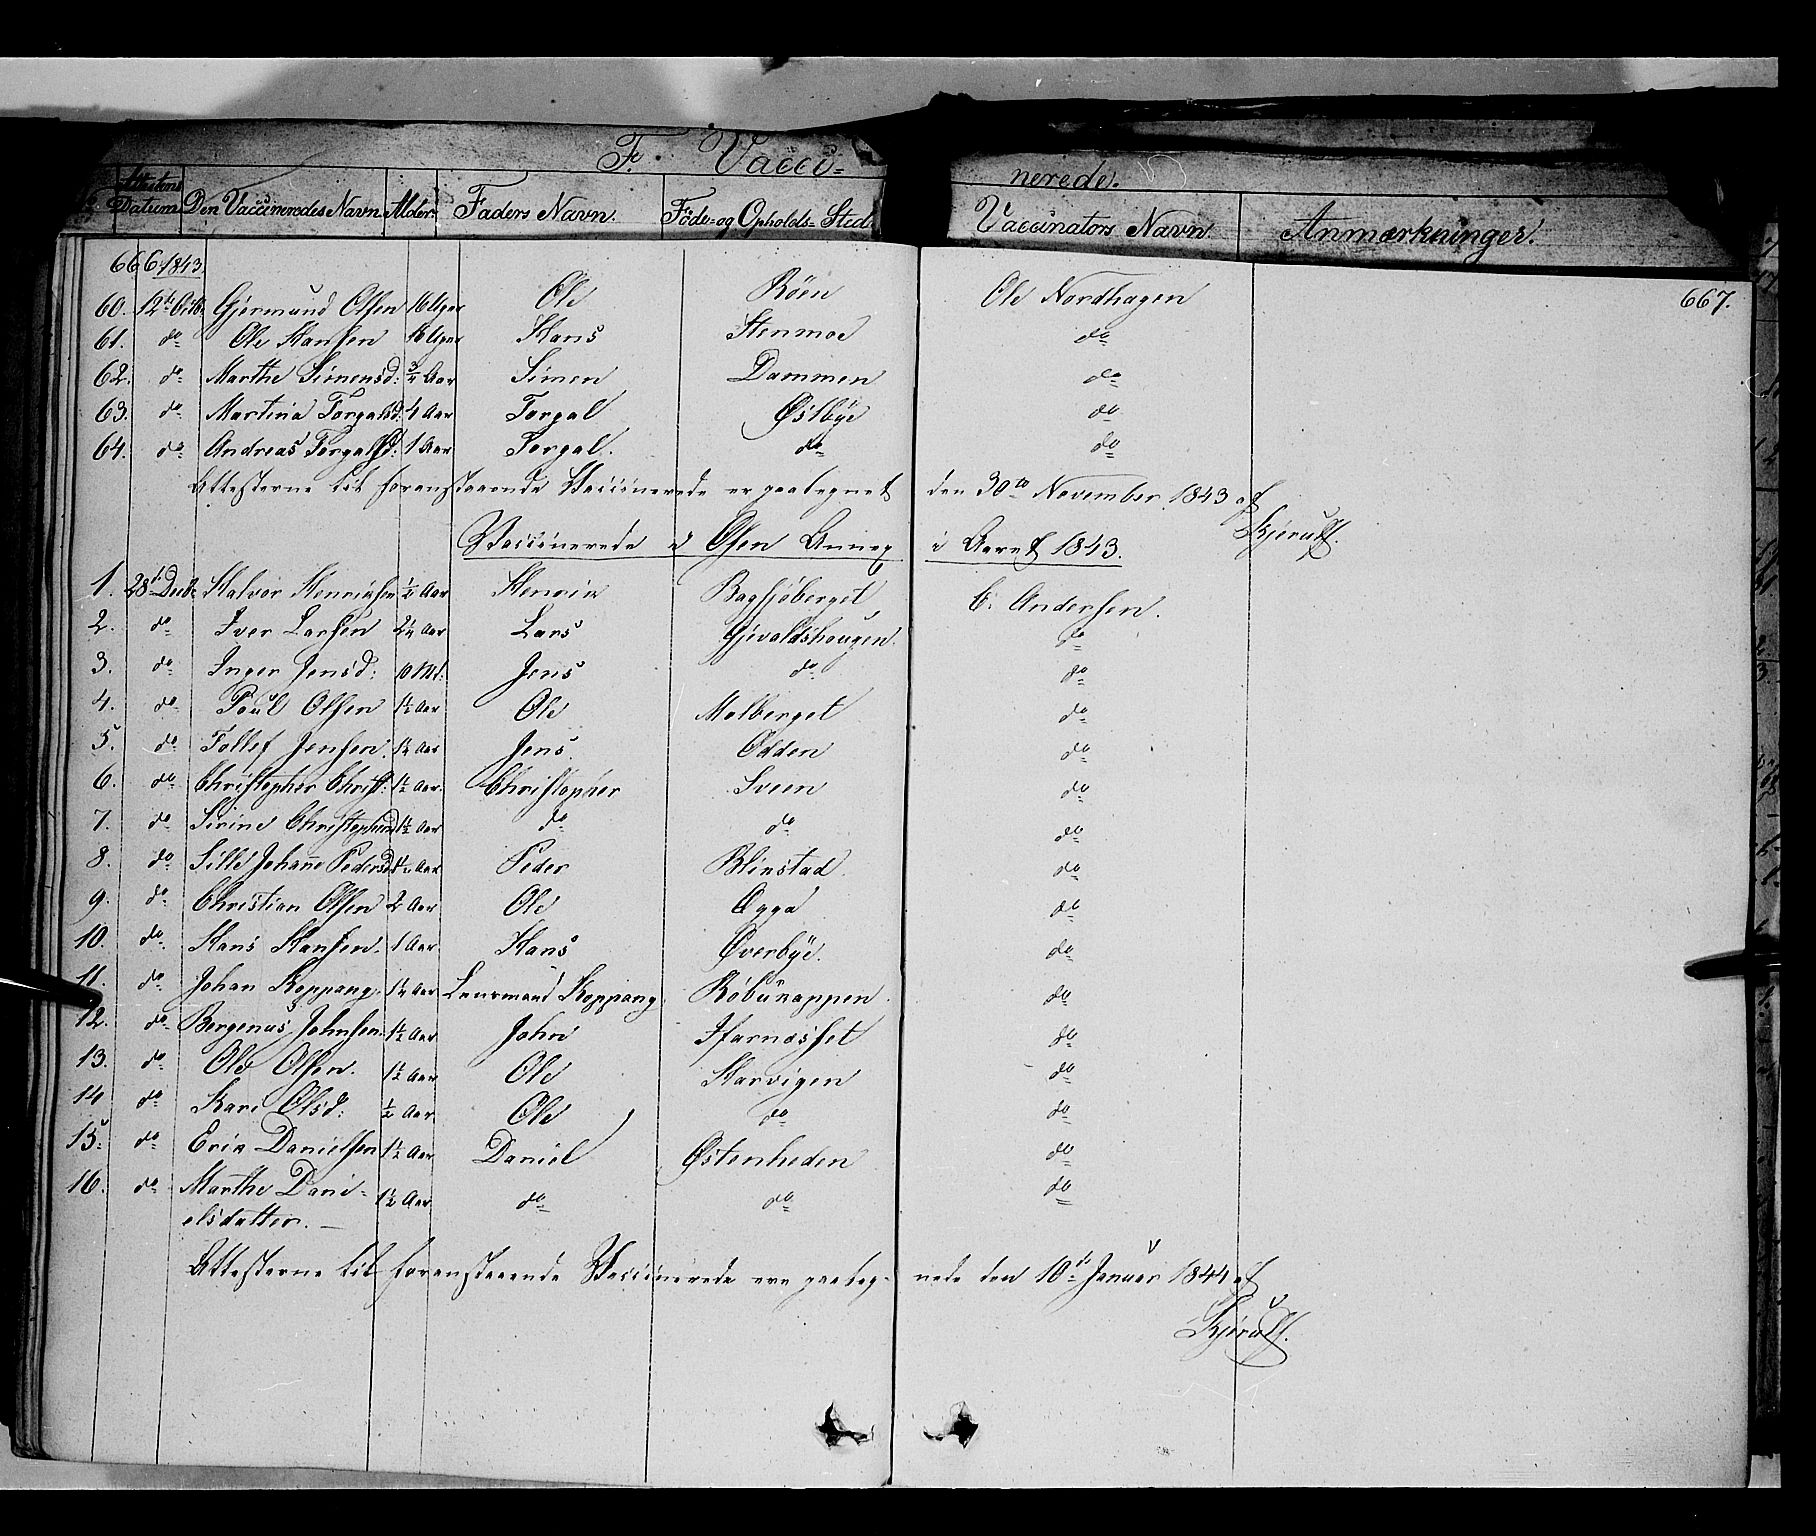 F. Vacci- nerede.
Attestens Datum Den Vaccineredes Navn Alder Faders Navn. Föde- og Opholds-Sted Vaccinators Navn. Anmærkninger.
666. 1843. 667.
60. 12te Octb. Gjermund Olsen 16 Uger Ole Röen Ole Nordhagen
61. do Ole Hansen 16 Uger Hans Stenmoe do
62. do Marthe Simensd: 3/4 Aar Simen Dammen do
63. do Martina Torgalsd: 4 Aar Torgal Østbye do
64. do Andreas Torgalsd: 1 Aar Torgal. do do
Attesterne til foranstaaende Vaccinerede er paategnet den 30te November 1843 af
Kjerulf.
Vaccinerede i Osen Annex i Aaret 1843.
1. 28de Decb. Halvor Henriksen 1/2 Aar Henrik Bagsjöberget C. Andersen.
2. do Iver Larsen 2 1/4 Aar Lars Gjevaldshaugen. do
3. do Inger Jensd: 10 Md. Jens do do
4. do Poul Olsen 1 1/2 Aar Ole Molberget do
5. do Tollef Jensen. 1 1/4 Aar Jens. Odden do
6. do Christopher Christ: 1 1/2 Aar. Christopher Sveen do
7. do Sirine Christophersd 1 1/2 Aar do do do
8. do Sille Johanne Pedersd 1 1/2 Aar Peder Blinstad. do
9. do Christian Olsen 2 Aar Ole Ogga do
10. do Hans Hansen. 1 Aar. Hans Øverbye. do
11. do Johan Koppang. 1 1/4 Aar Lensmand Koppang. Röbunappen. do
12. do Bergenus Johnsen. 1 1/2 Aar John Ifarnæsset do
13. do Ole Olsen. 1 1/2 Aar Ole Skarvigen do
14 do Kari Olsd: 1/2 Aar Ole do do
15. do Erik Danielsen 1 1/2 Aar Daniel Østenheden do
16. do Marthe Dani- 1 1/2 Aar do do do
elsdatter. —
Attesterne til foranstaaende Vaccinerede ere paateg- nede den 10de Januar 1844 af
Kjerulf.